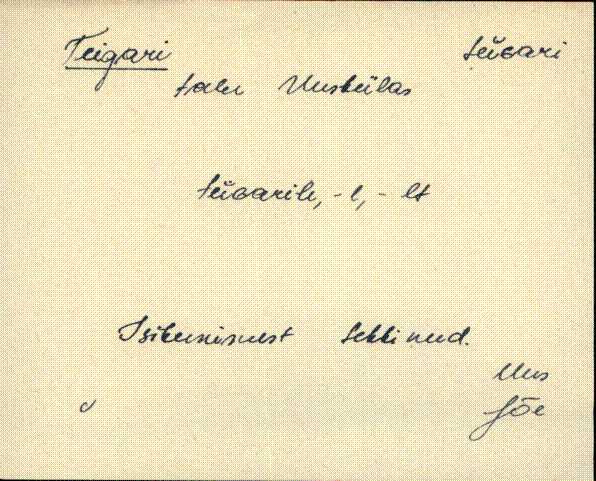 Tiigari tiiGari
talu Uuskülas
tiiGarile, -l, -lt
Isikunimest tekkinud.
Uus
Jõe